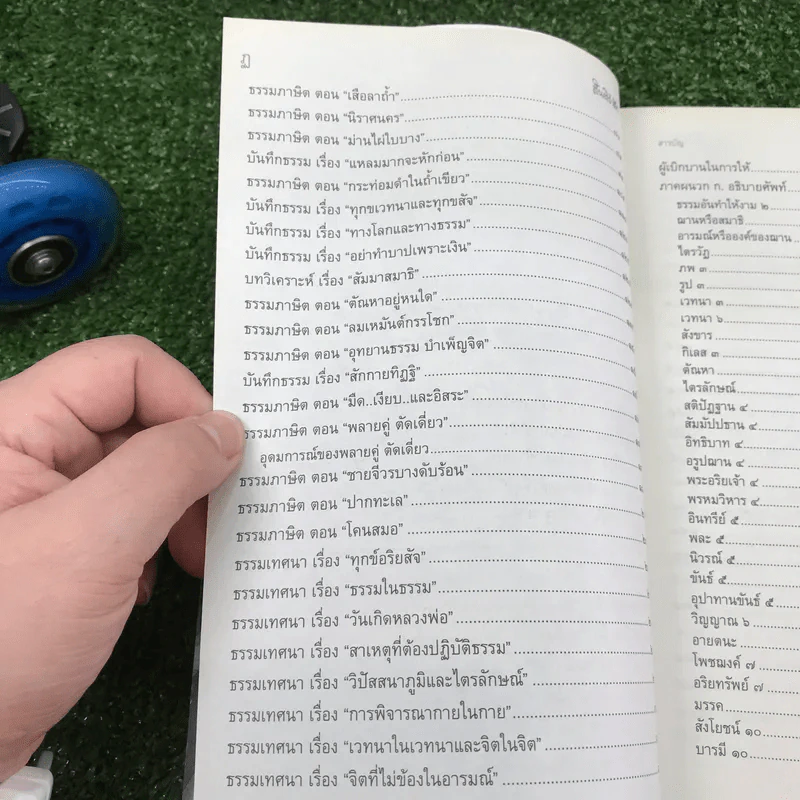 ฎ
ธรรมภาษิต ตอน "เสือลาถ้ำ"
ธรรมภาษิต ตอน "นิราศนคร"
ธรรมภาษิต ตอน "ม่านไผ่ใบบาง"
บันทึกธรรม เรื่อง "แหลมมากจะหักก่อน"
ธรรมภาษิต ตอน "กระท่อมดำในถ้ำเขียว"
บันทึกธรรม เรื่อง "ทุกขเวทนาและทุกขสัจ"
บันทึกธรรม เรื่อง "ทางโลกและทางธรรม"
บันทึกธรรม เรื่อง "อย่าทำบาปเพราะเงิน"
บทวิเคราะห์ เรื่อง "สัมมาสมาธิ"
ธรรมภาษิต ตอน "ตัณหาอยู่หนใด"
ธรรมภาษิต ตอน "ลมเหมันต์กรรโชก"
ธรรมภาษิต ตอน "อุทยานธรรม บำเพ็ญจิต"
บันทึกธรรม เรื่อง "สักกายทิฏฐิ"
ธรรมภาษิต ตอน "มืด..เงียบ..และอิสระ"
ธรรมภาษิต ตอน "พลายคู่ ตัดเดี่ยว"
อุดมการณ์ของพลายคู่ ตัดเดี่ยว
ธรรมภาษิต ตอน "ชายจีวรบางดับร้อน"
ธรรมภาษิต ตอน "ปากทะเล"
ธรรมภาษิต ตอน "โคนสมอ"
ธรรมเทศนา เรื่อง "ทุกข์อริยสัจ"
ธรรมเทศนา เรื่อง "ธรรมในธรรม"
ธรรมเทศนา เรื่อง "วันเกิดหลวงพ่อ"
ธรรมเทศนา เรื่อง "สาเหตุที่ต้องปฏิบัติธรรม"
ธรรมเทศนา เรื่อง "วิปัสสนาภูมิและไตรลักษณ์"
ธรรมเทศนา เรื่อง "การพิจารณากายในกาย"
ธรรมเทศนา เรื่อง "เวทนาในเวทนาและจิตในจิต"
ธรรมเทศนา เรื่อง "จิตที่ไม่ข้องในอารมณ์"
สารบัญ
ผู้เบิกบานในการให้
ภาคผนวก ก. อธิบายศัพท์
ธรรมอันทำให้งาม ๒
ฌานหรือสมาธิ
อารมณ์หรือองค์ของฌาน
ไตรวัฏ
ภพ ๓
รูป ๓
เวทนา ๓
เวทนา ๖
สังขาร
กิเลส ๓
ตัณหา
ไตรลักษณ์
สติปัฏฐาน ๔
สัมมัปปธาน ๔
อิทธิบาท ๔
อรูปฌาน ๔
พระอริยเจ้า ๔
พรหมวิหาร ๔
อินทรีย์ ๕
พละ ๕
นิวรณ์ ๕
ขันธ์ ๕
อุปาทานขันธ์ ๕
วิญญาณ ๖
อายตนะ
โพชฌงค์ ๗
อริยทรัพย์ ๗
มรรค
สังโยชน์ ๑๐
บารมี ๑๐